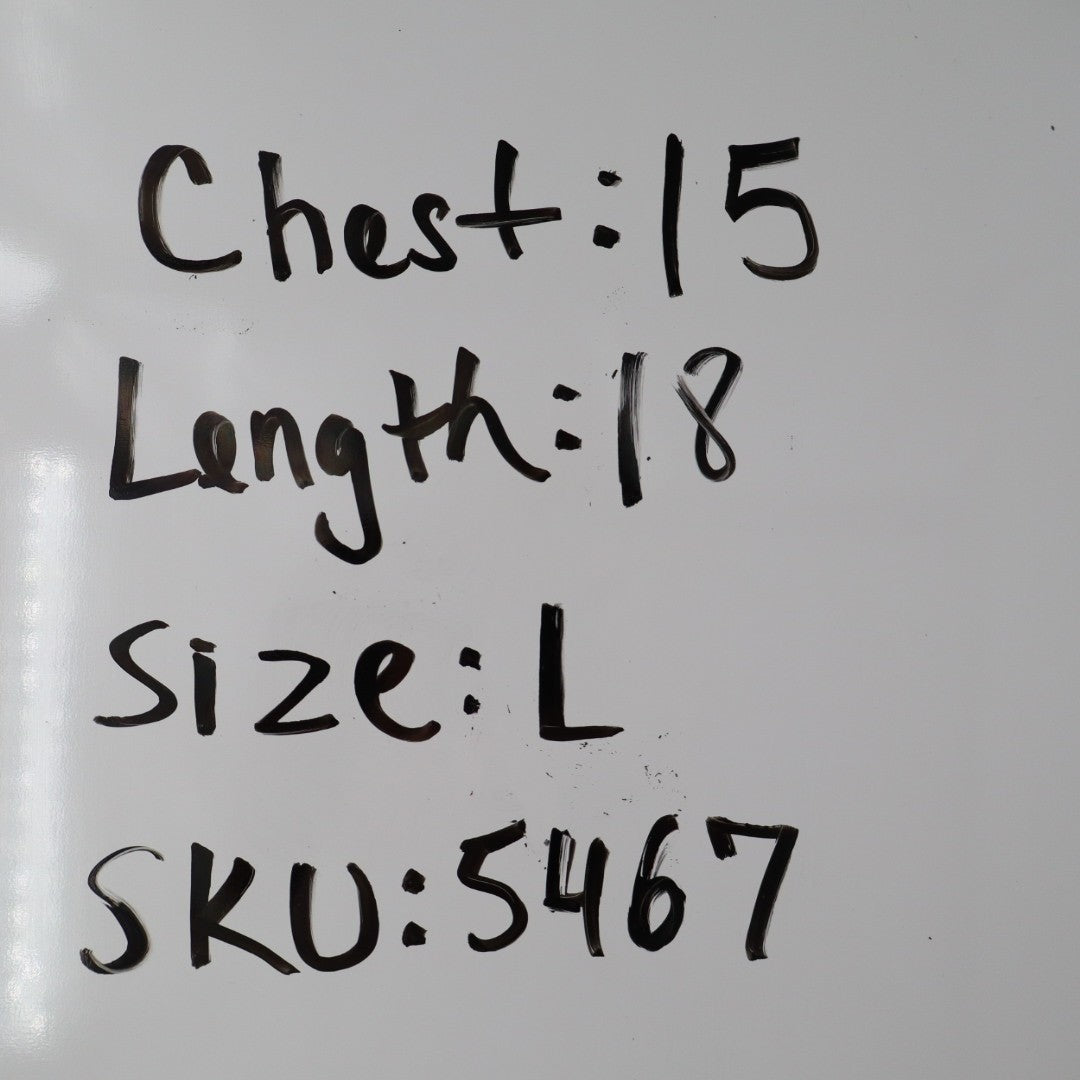 Chest:15
Length:18
Size:L
SKU:5467